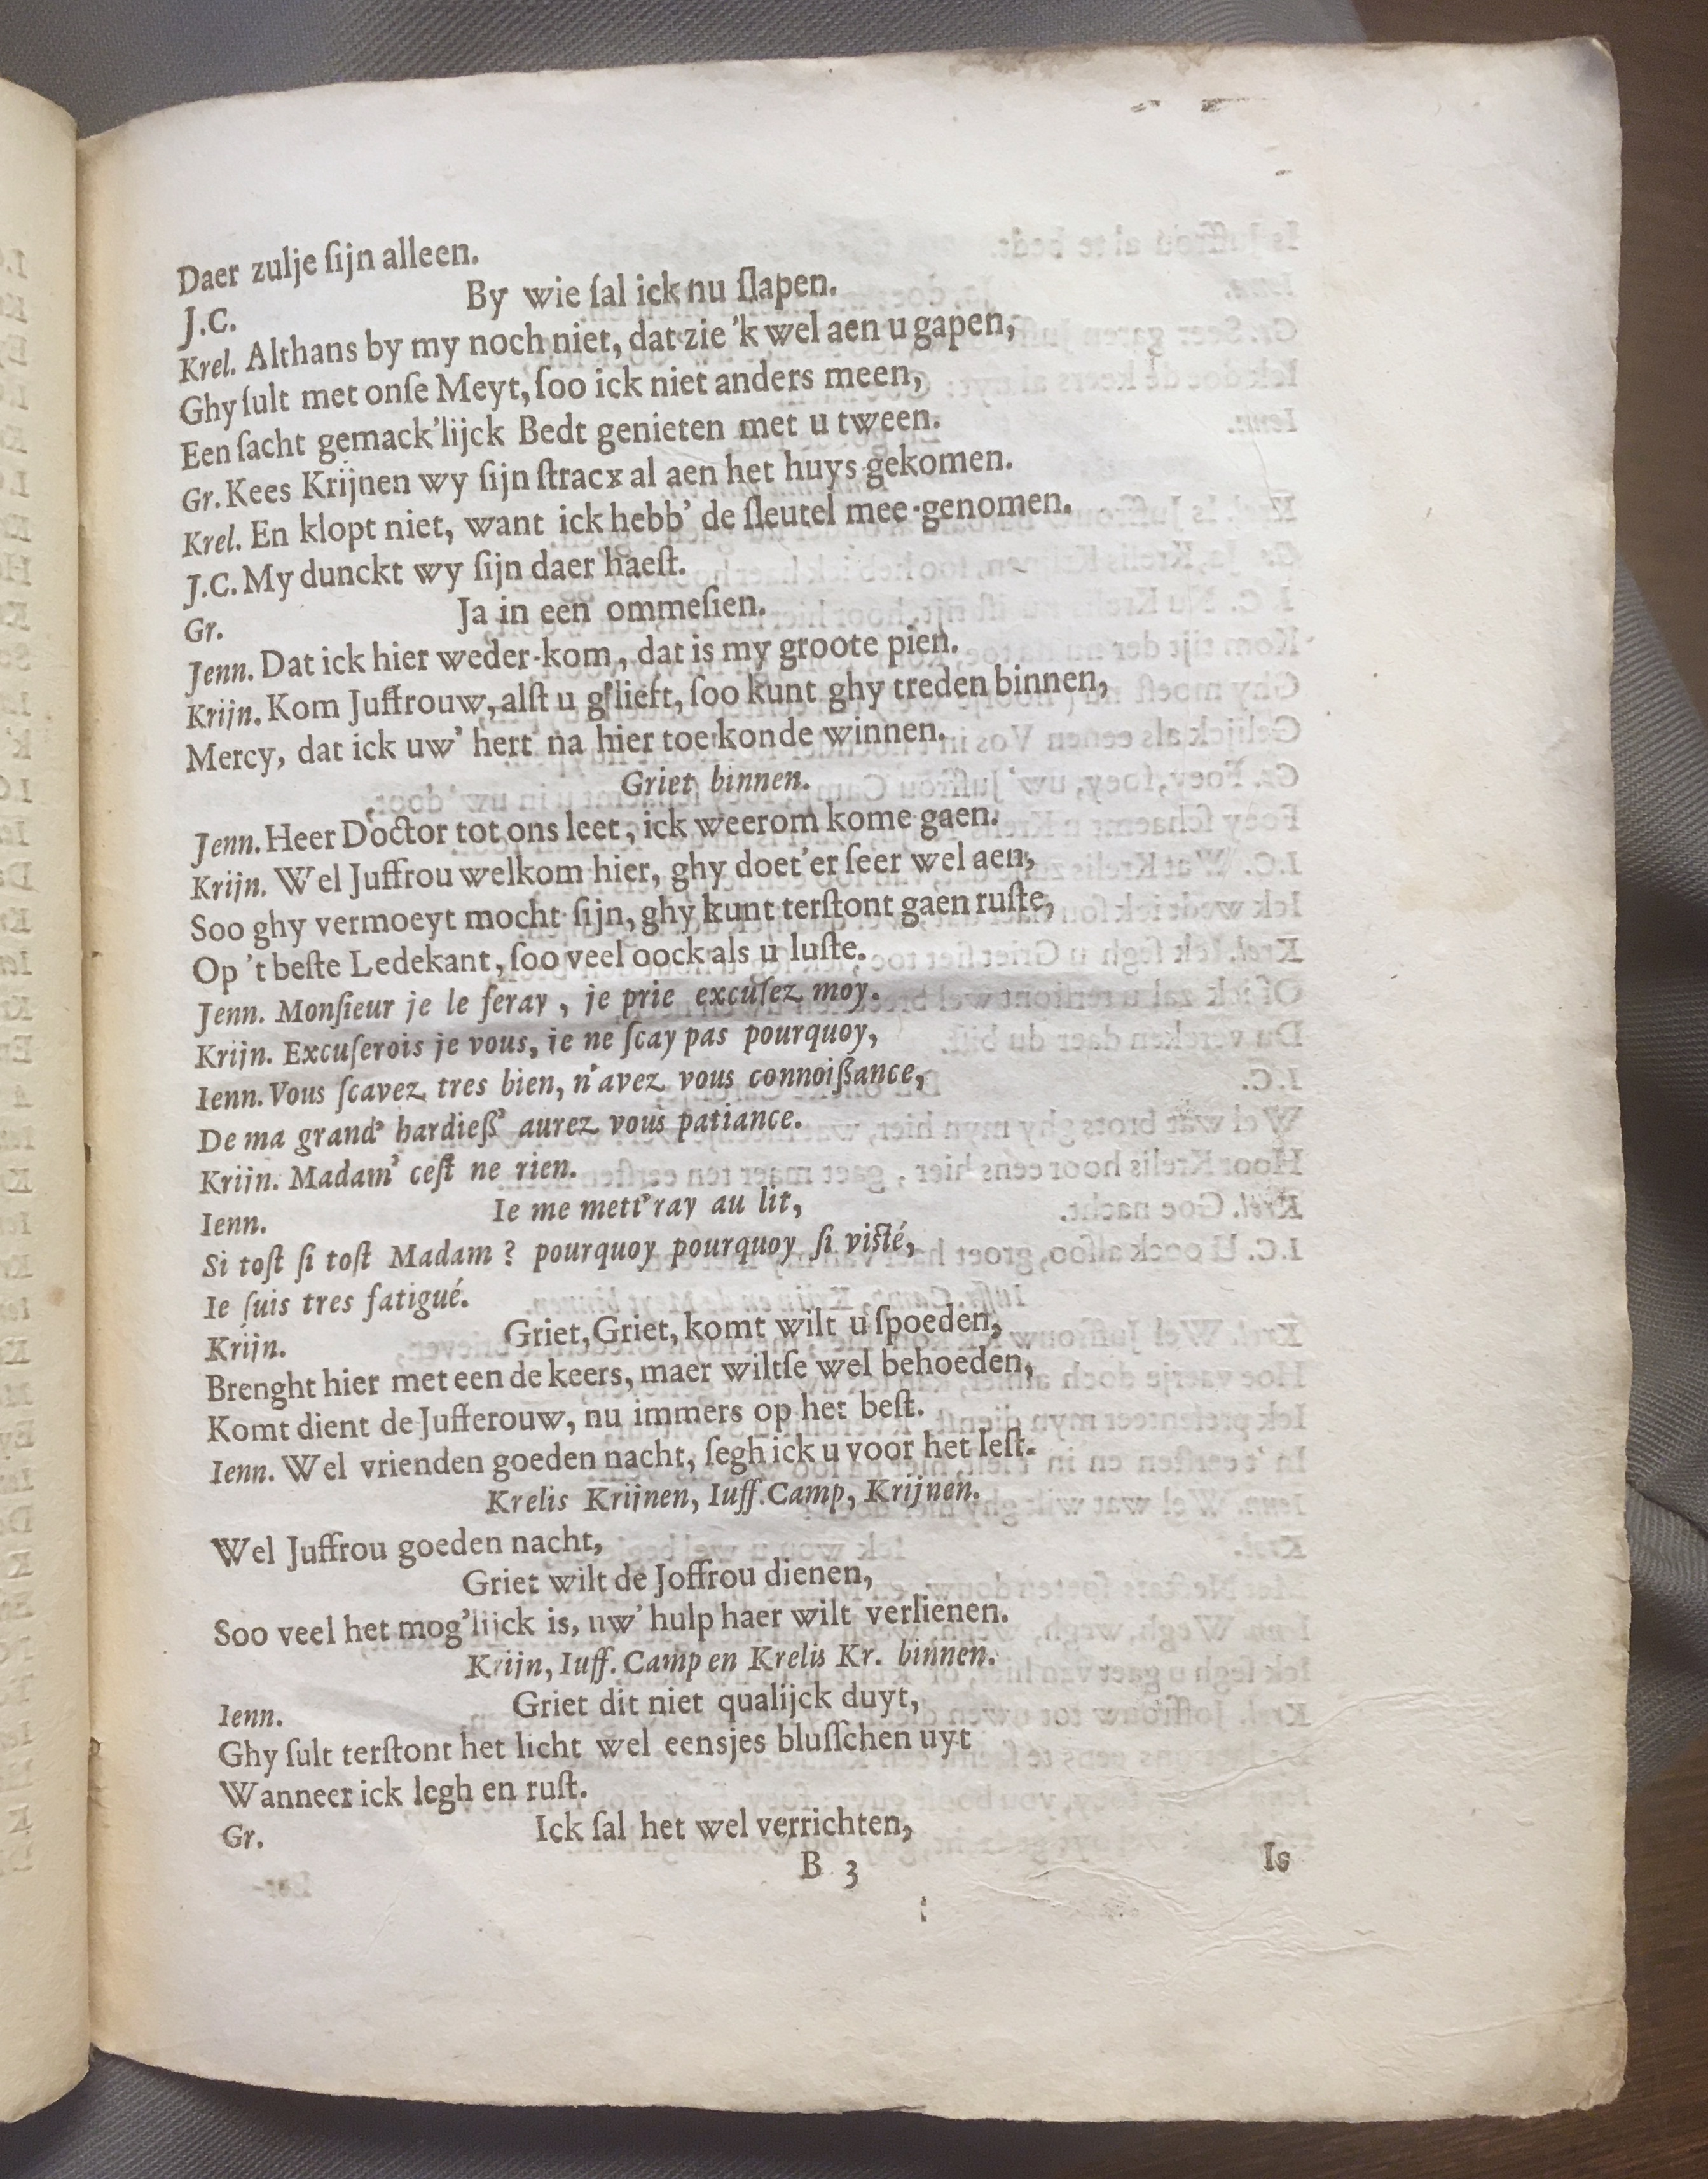 Daer zulje ſijn alleen.
J.C. By wie ſal ick nu ſlapen.
Krel. Althans by my noch niet, dat zie 'k wel aen u gapen,
Ghy ſult met onſe Meyt, ſoo ick niet anders meen,
Een ſacht gemack'lijck Bedt genieten met u tween.
Gr. Kees Krijnen wy ſijn ſtracx al aen het huys gekomen.
Krel. En klopt niet, want ick hebb' de ſleutel mee-genomen.
J.C. My dunckt wy ſijn daer haeſt.
Gr. Ja in een ommeſien.
Jenn. Dat ick hier weder-kom, dat is my groote pien.
Krijn. Kom Juffrouw, alſt u g'lieft, ſoo kunt ghy treden binnen,
Mercy, dat ick uw' hert na hier toe konde winnen.
Griet binnen.
Jenn. Heer Doctor tot ons leet, ick weerom kome gaen.
Krijn. Wel Juffrou welkom hier, ghy doet'er ſeer wel aen,
Soo ghy vermoeyt mocht ſijn, ghy kunt terſtont gaen ruſte,
Op 't beſte Ledekant, ſoo veel oock als u luſte.
Jenn. Monſieur je le feray, je prie excuſez moy.
Krijn. Excuſerois je vous, ie ne ſcay pas pourquoy,
Ienn. Vous ſcavez tres bien, n'avez vous connoißance,
De ma grand' hardieß' aurez vous patiance.
Krijn. Madam' ceſt ne rien.
Ienn. Ie me mett'ray au lit,
Si toſt ſi toſt Madam? pourquoy pourquoy ſi viſté,
Ie ſuis tres fatigué.
Krijn. Griet, Griet, komt wilt u ſpoeden,
Brenght hier met een de keers, maer wiltſe wel behoeden,
Komt dient de Jufferouw, nu immers op het beſt.
Ienn. Wel vrienden goeden nacht, ſegh ick u voor het leſt.
Krelis Krijnen, Iuff. Camp, Krijnen.
Wel Juffrou goeden nacht,
Griet wilt de Joffrou dienen,
Soo veel het mog'lijck is, uw' hulp haer wilt verlienen.
Krijn, Iuff. Camp en Krelis Kr. binnen.
Ienn. Griet dit niet qualijck duyt,
Ghy ſult terſtont het licht wel eensjes bluſſchen uyt
Wanneer ick legh en ruſt.
Gr. Ick ſal het wel verrichten,
B 3 Is